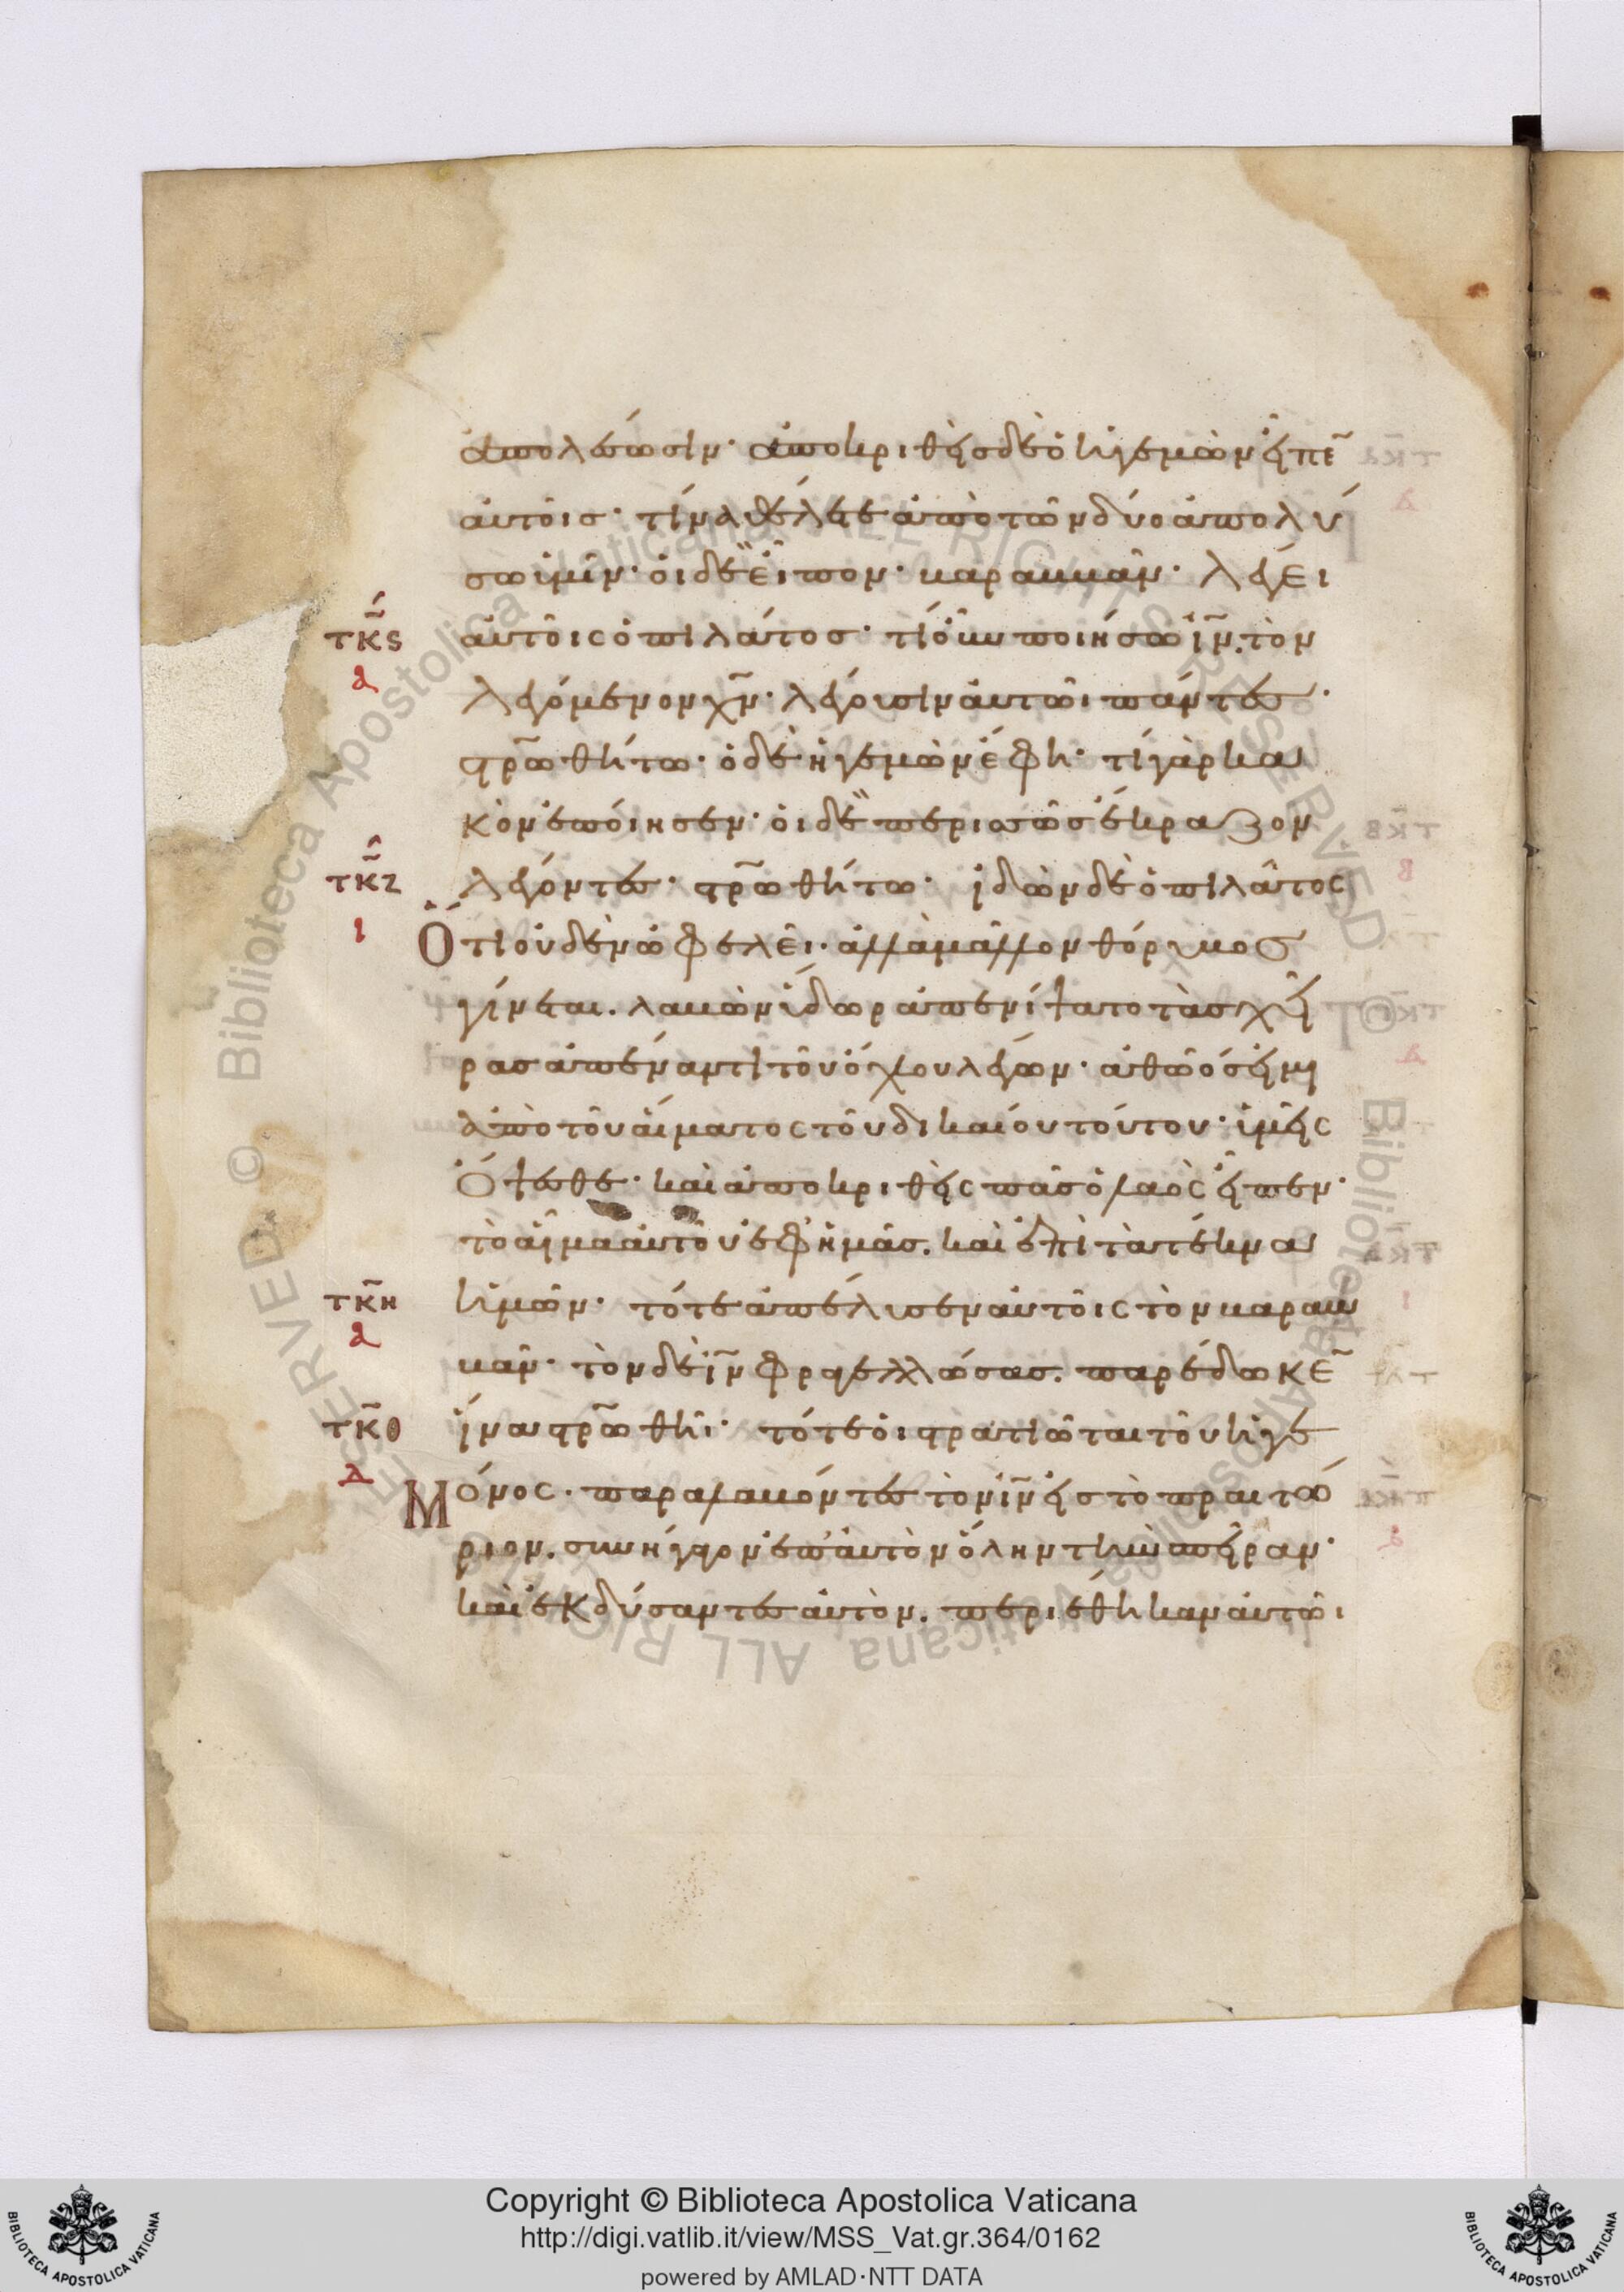 ἀπολέσωσιν· ἀποκριθεὶς δὲ ὁ ἡγεμὼν εἶπε̄
αὐτοῖς· τίνα θέλετε ἀπὸ τῶν δύο ἀπολύ
σω ὑμῖν· οἱ δὲ εἶπον· βαραββᾶν· λέγει
τκ̄ς αὐτοῖς ὁ πιλάτος· τί οὖν ποιήσω ῑν̄. τὸν
α λεγόμενον χ̄ν̄· λέγουσιν αὐτῶι πάντες·
στρ̄ωθήτω· ὁ δὲ ἡγεμὼν ἔφη· τί γὰρ κα
κὸν ἐποίησεν· οἱ δὲ περισσῶς ἔκραζον
τκ̄ζ λέγοντες· στρ̄ωθήτω· ἰδὼν δὲ ὁ πιλᾶτος
ι Ὅτι οὐδὲν ὠφελεῖ· ἀλλὰ μᾶλλον θόρυβος
γίνεται. λαβὼν ὕδωρ ἀπενίψατο τὰς χεῖ
ρας ἀπέναντι τοῦ ὄχλου λέγων· ἀθῶός εἰμι
ἀπὸ τοῦ αἵματος τοῦ δικαίου τούτου· ὑμεῖς
ὄψεσθε· καὶ ἀποκριθεὶς πᾶς ὁ λαὸς εἶπεν·
τὸ αἷμα αὐτοῦ ἐφ' ἡμᾶς. καὶ ἐπὶ τὰ τέκνα
τκ̄η ἡμῶν· τότε ἀπέλυσεν αὐτοῖς τὸν βαραβ
α βᾶν· τὸν δὲ ῑν̄ φραγελλώσας. παρέδωκε̄
τκ̄θ ἵνα στρ̄ωθῆι· τότε οἱ στρατιῶται τοῦ ἡγε
Δ Μόνος· παραλαβόντες τὸν ῑν̄ εἰς τὸ πραιτώ
ριον. συνήγαγον ἐπ' αὐτὸν ὅλην τὴν σπεῖραν·
καὶ ἐκδύσαντες αὐτὸν. περιέθηκαν αὐτῶι
Copyright © Biblioteca Apostolica Vaticana
http://digi.vatlib.it/view/MSS_Vat.gr.364/0162
powered by AMLAD·NTT DATA
BIBLIOTECA APOSTOLICA VATICANA
BIBLIOTECA APOSTOLICA VATICANA